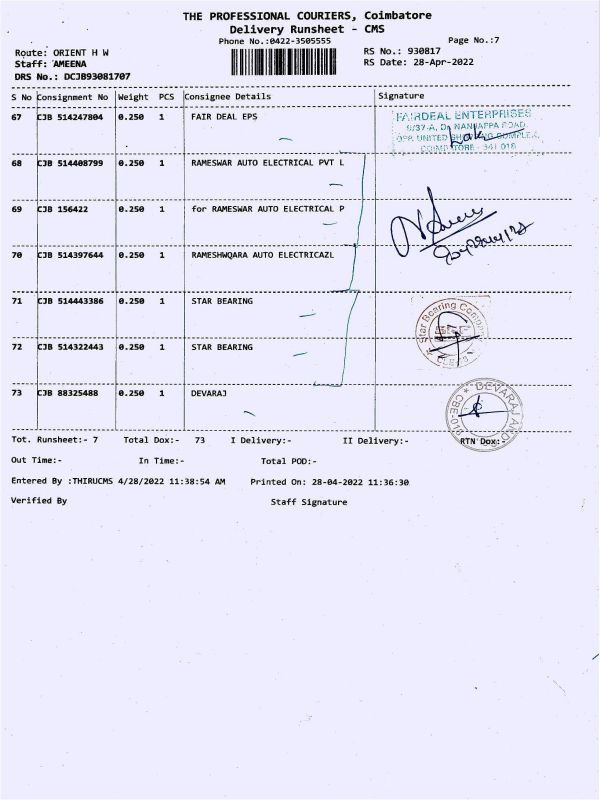 THE PROFESSIONAL COURIERS, Coimbatore
Delivery Runsheet - CMS
Phone No.:0422-3505555
Page No.:7
Route: ORIENT H W
RS No.: 930817
Staff: AMEENA
RS Date: 28-Apr-2022
DRS No.: DCJB93081707
S No Consignment No Weight PCS Consignee Details Signature
67 CJB 514247804 0.250 1 FAIR DEAL EPS
FAIRDEAL ENTERPRISES
9/37-A, Dr NANJAPPA ROAD,
OPP. UNITED SHOPPING COMPLEX,
COIMBATORE - 641 018
68 CJB 514408799 0.250 1 RAMESWAR AUTO ELECTRICAL PVT L
69 CJB 156422 0.250 1 for RAMESWAR AUTO ELECTRICAL P
70 CJB 514397644 0.250 1 RAMESHWQARA AUTO ELECTRICAZL
71 CJB 514443386 0.250 1 STAR BEARING
Star Bearing Company
72 CJB 514322443 0.250 1 STAR BEARING
73 CJB 88325488 0.250 1 DEVARAJ
DEVARAJ AND
CBE-010
Tot. Runsheet:- 7 Total Dox:- 73 I Delivery:- II Delivery:- RTN Dox:-
Out Time:- In Time:- Total POD:-
Entered By :THIRUCMS 4/28/2022 11:38:54 AM Printed On: 28-04-2022 11:36:30
Verified By Staff Signature